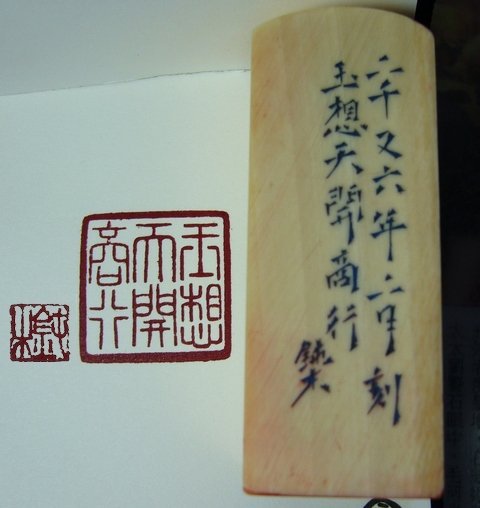 二千又六年二月刻
玉想天開商行
玉想
天開
商行